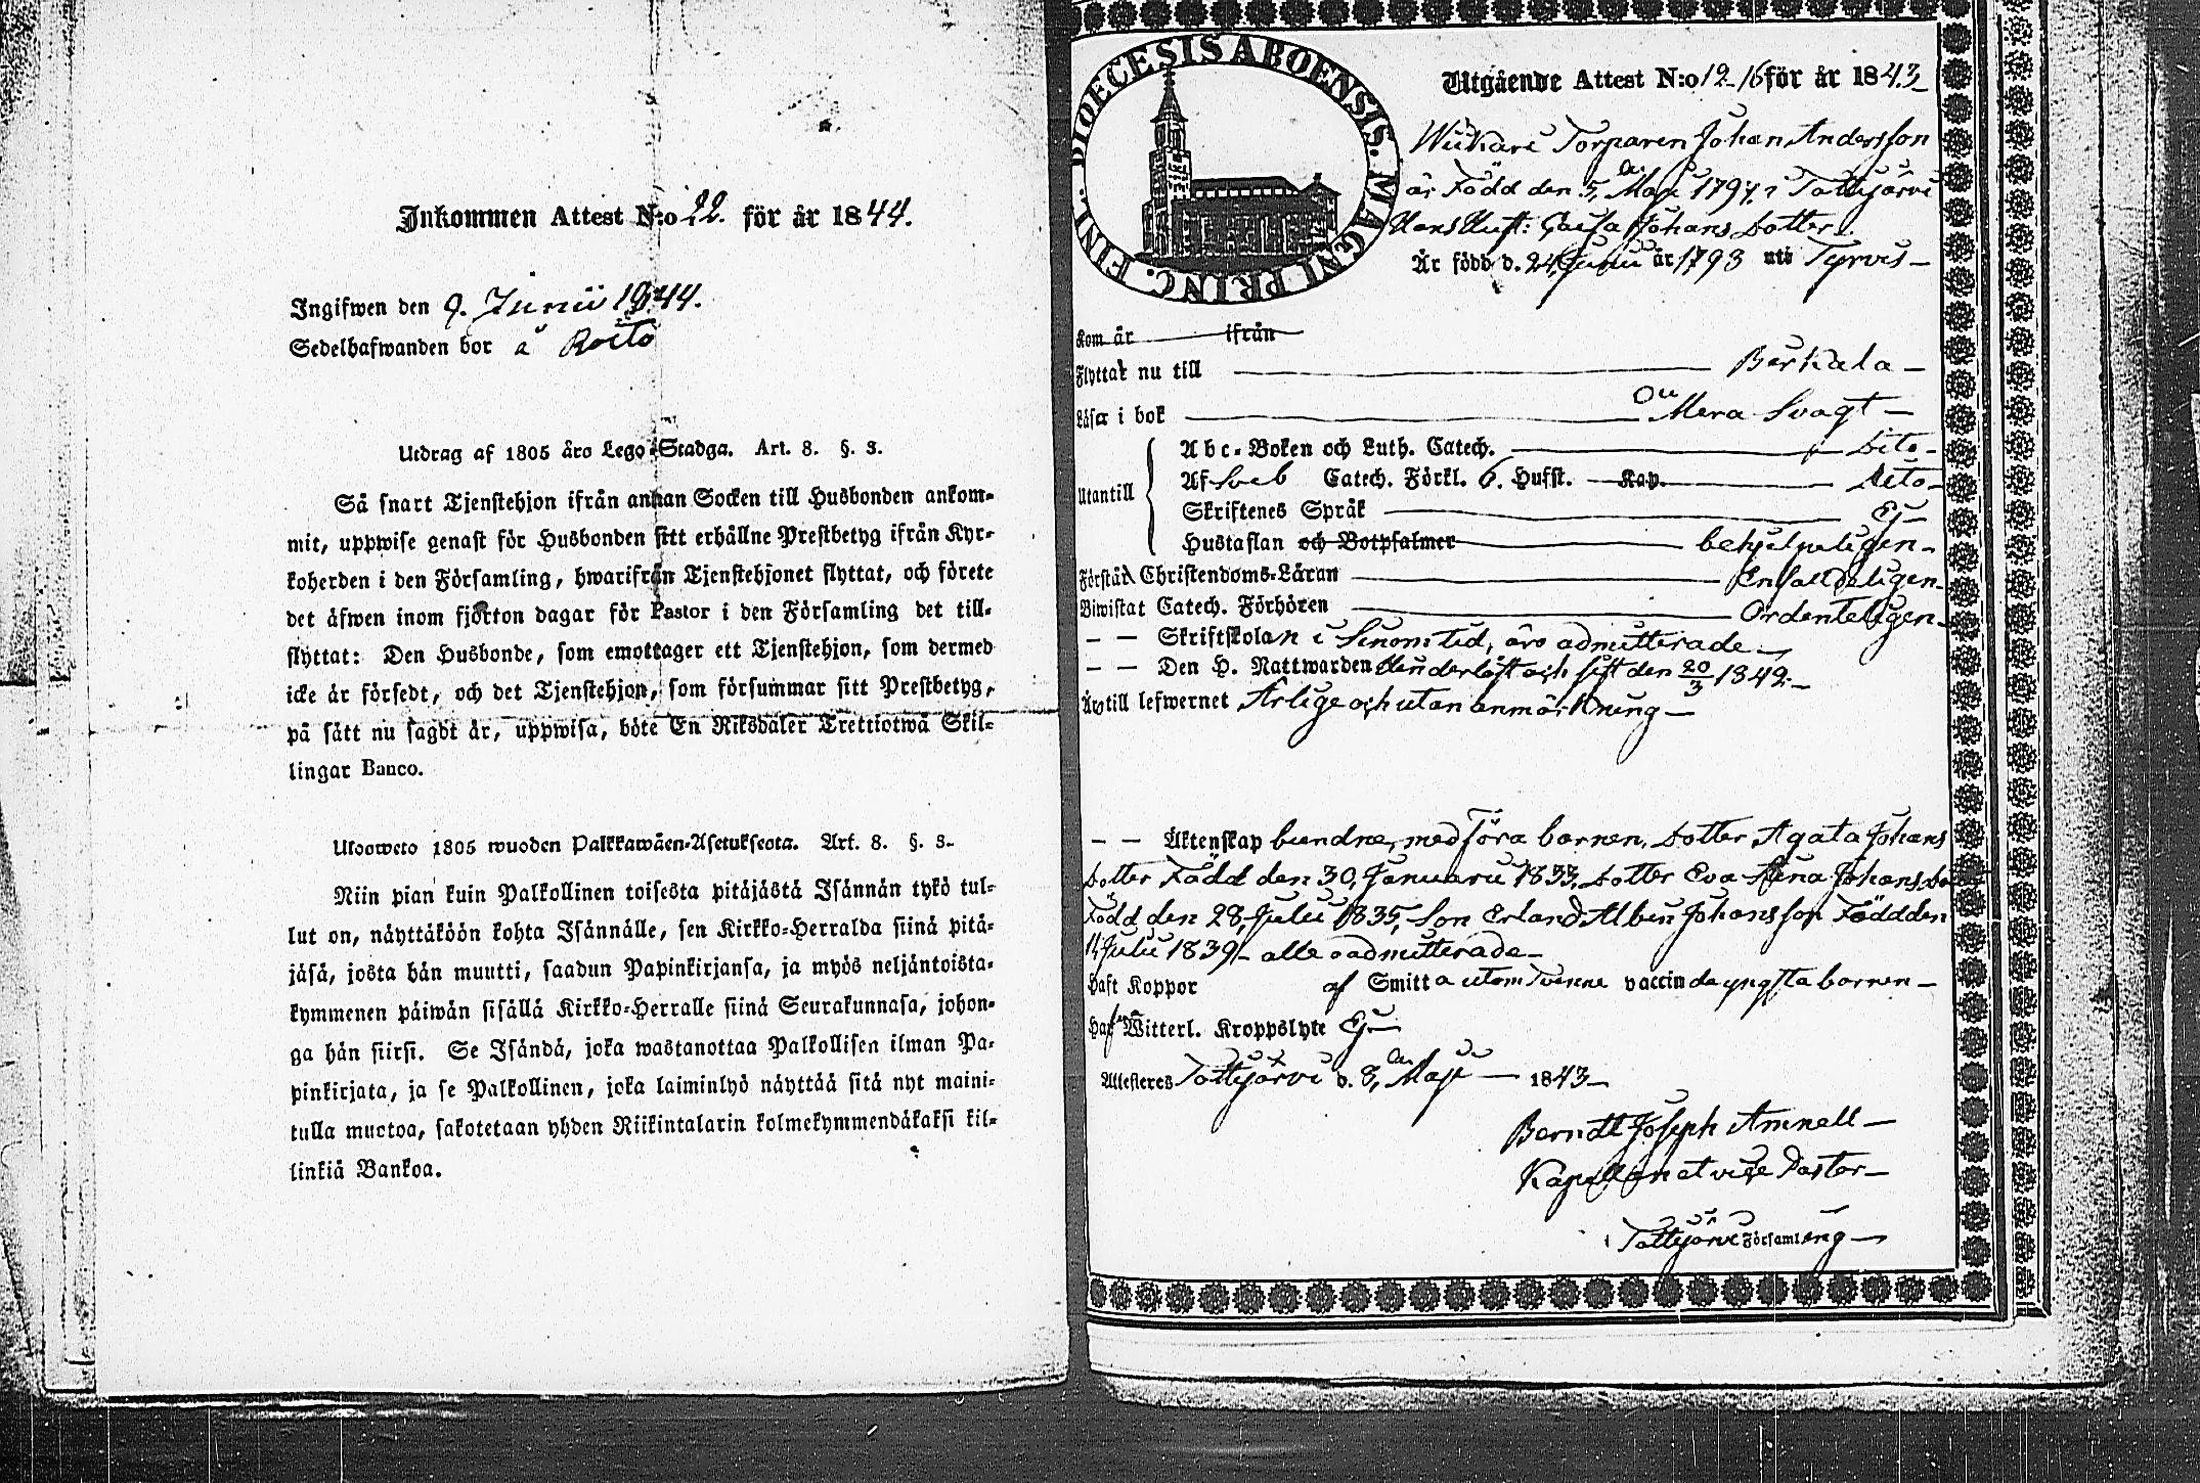 Inkommen Attest N:o 22. för år 1844.
Ingifwen den 9. Junii 1844.
Sedelhafwanden bor å Roito
Utdrag af 1805 års Lego-Stadga. Art. 8. §. 3.
Så snart Tjenstehjon ifrån annan Socken till Husbonden ankom-
mit, uppwise genast för Husbonden sitt erhållne Prestbetyg ifrån Kyr-
koherden i den Församling, hwarifrån Tjenstehjonet flyttat, och förete
det äfwen inom fjorton dagar för Pastor i den Församling det till-
flyttat: Den Husbonde, som emottager ett Tjenstehjon, som dermed
icke är försedt, och det Tjenstehjon, som försummar sitt Prestbetyg,
på sätt nu sagdt är, uppwisa, böte En Riksdaler Trettiotwå Skil-
lingar Banco.
Ulosweto 1805 wuoden Palkkawäen-Asetuksesta. Art. 8. §. 3.
Niin pian kuin Palkollinen toisesta pitäjästä Isännän tykö tul-
lut on, näyttäköön kohta Isännälle, sen Kirkko-Herralda siinä pitä-
jäsä, josta hän muutti, saadun Papinkirjansa, ja myös neljäntoista-
kymmenen päiwän sisällä Kirkko-Herralle siinä Seurakunnasa, johon-
ga hän siirsi. Se Isändä, joka wastanottaa Palkollisen ilman Pa-
pinkirjata, ja se Palkollinen, joka laiminlyö näyttää sitä nyt maini-
tulla muotoa, sakotetaan yhden Riikintalarin kolmekymmendäkaksi kil-
linkiä Bankoa.
DIOECESIS ABOENSIS. MAGNI PRINC. FINL.
Utgående Attest N:o 12-16 för år 1843
Torparen Johan Andersson
är Född den 5, Maji 1797, i Tottijärvi
Hans Hust: Caisa Johans Dotter.
Är född d. 24 Junii år 1793 uti Tyrvis
kom år ifrån
Flyttar nu till Birkala
Läser i bok Mera Svagt
Abc-Boken och Luth. Catech. Dito
Utantill Af Sveb Catech. Förkl. 6. Hufst. Kap. Dito
Skriftenes Språk Ej
Hustaflan och Botpsalmer behjelpeligen
Förstår Christendoms-Läran Enfaldeligen
Biwistat Catech. Förhören Ordenteligen
— — Skriftskolan i Sinom tid, äro admitterade
— — Den H. Nattwarden och sist den 20/3 1842.
Äro till lefwernet Ärlige och utan anmärkning
— — Äktenskap bundne, medföra barnen, Dotter Agata Johans
Dotter Född den 30, Januarii 1833, Dotter Eva Johans Do
Född den 28, Julii 1835, Son Erland Albin Johansson Född den
11 Julii 1839 alle oadmitterade
Haft Koppor af Smitta utom Tvenne vaccin de yngsta barnen
Witterl. Kroppslyte Ej
Attesteres Tottijärvi d. 8, Maji 1843
Berndt Joseph Amnell
Kapellan et vice Pastor
i Tottijärvi Församling